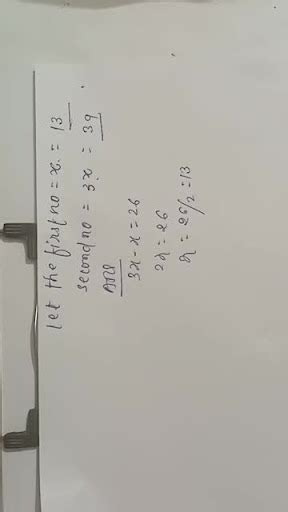 let the first no = x. = 13
second no = 3x = 39
ATQ
3x - x = 26
2x = 26
x = 26/2 = 13